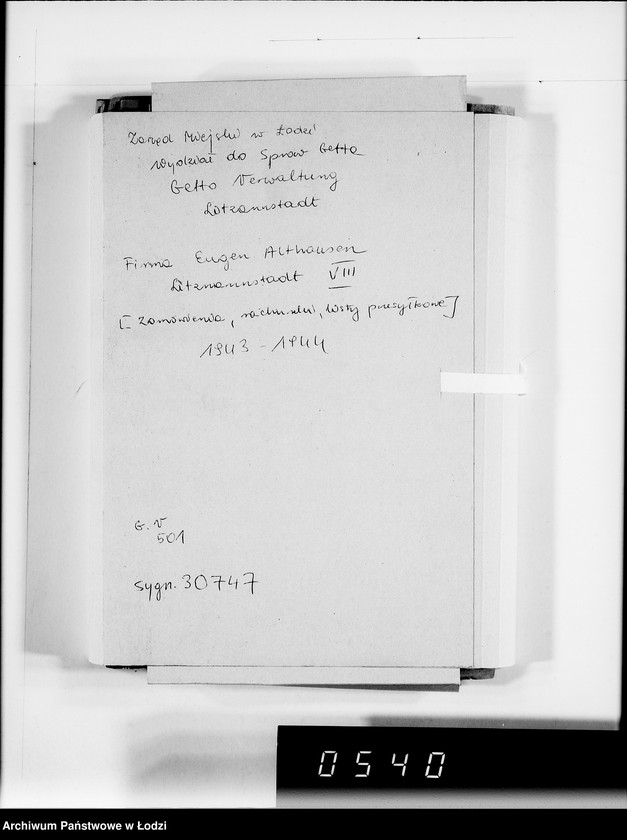 Zarząd Miejski w Łodzi
Wydział do Spraw Getta
Getto Verwaltung
Litzmannstadt
Firma Eugen Althausen
Litzmannstadt VIII
[Zamówienia, rachunki, listy przesyłkowe]
1943 - 1944
G. V
501
sygn. 30747
0540
Archiwum Państwowe w Łodzi